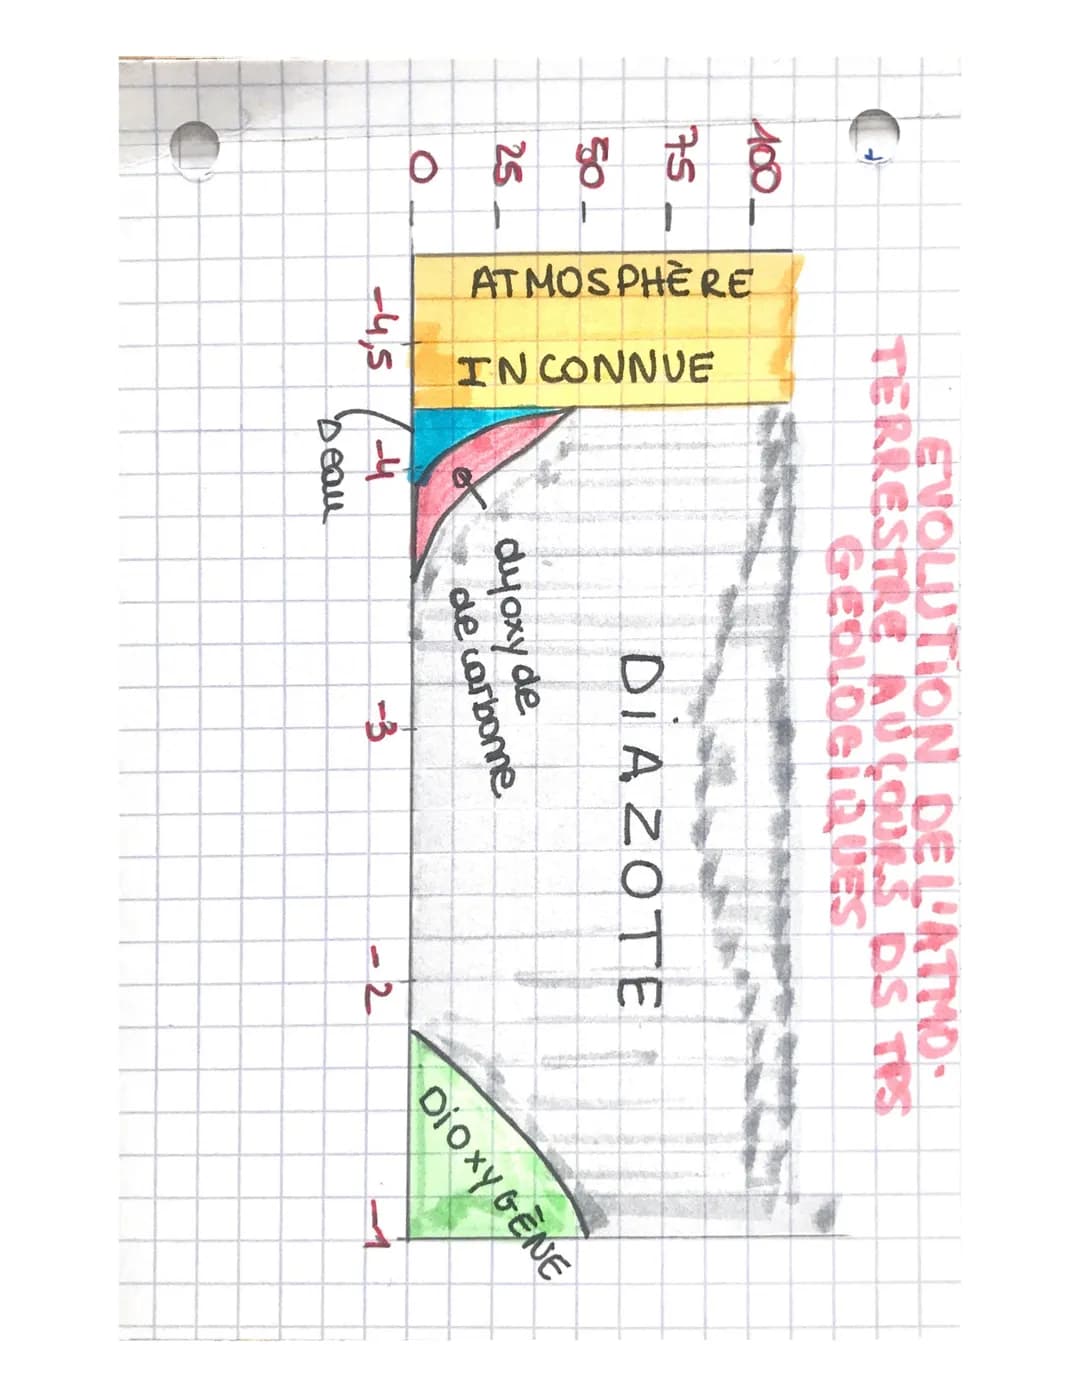 EVOLUTION DE L'ATMO.
TERRESTRE AU COURS DS TPS
GEOLOGIQUES
100
75
50
25
0
ATMOSPHÈRE
INCONNUE
DIAZOTE
dyoxy de
de carbonne
DiOXYGÈNE
eau
-4,5
-4
-3
-2
-1